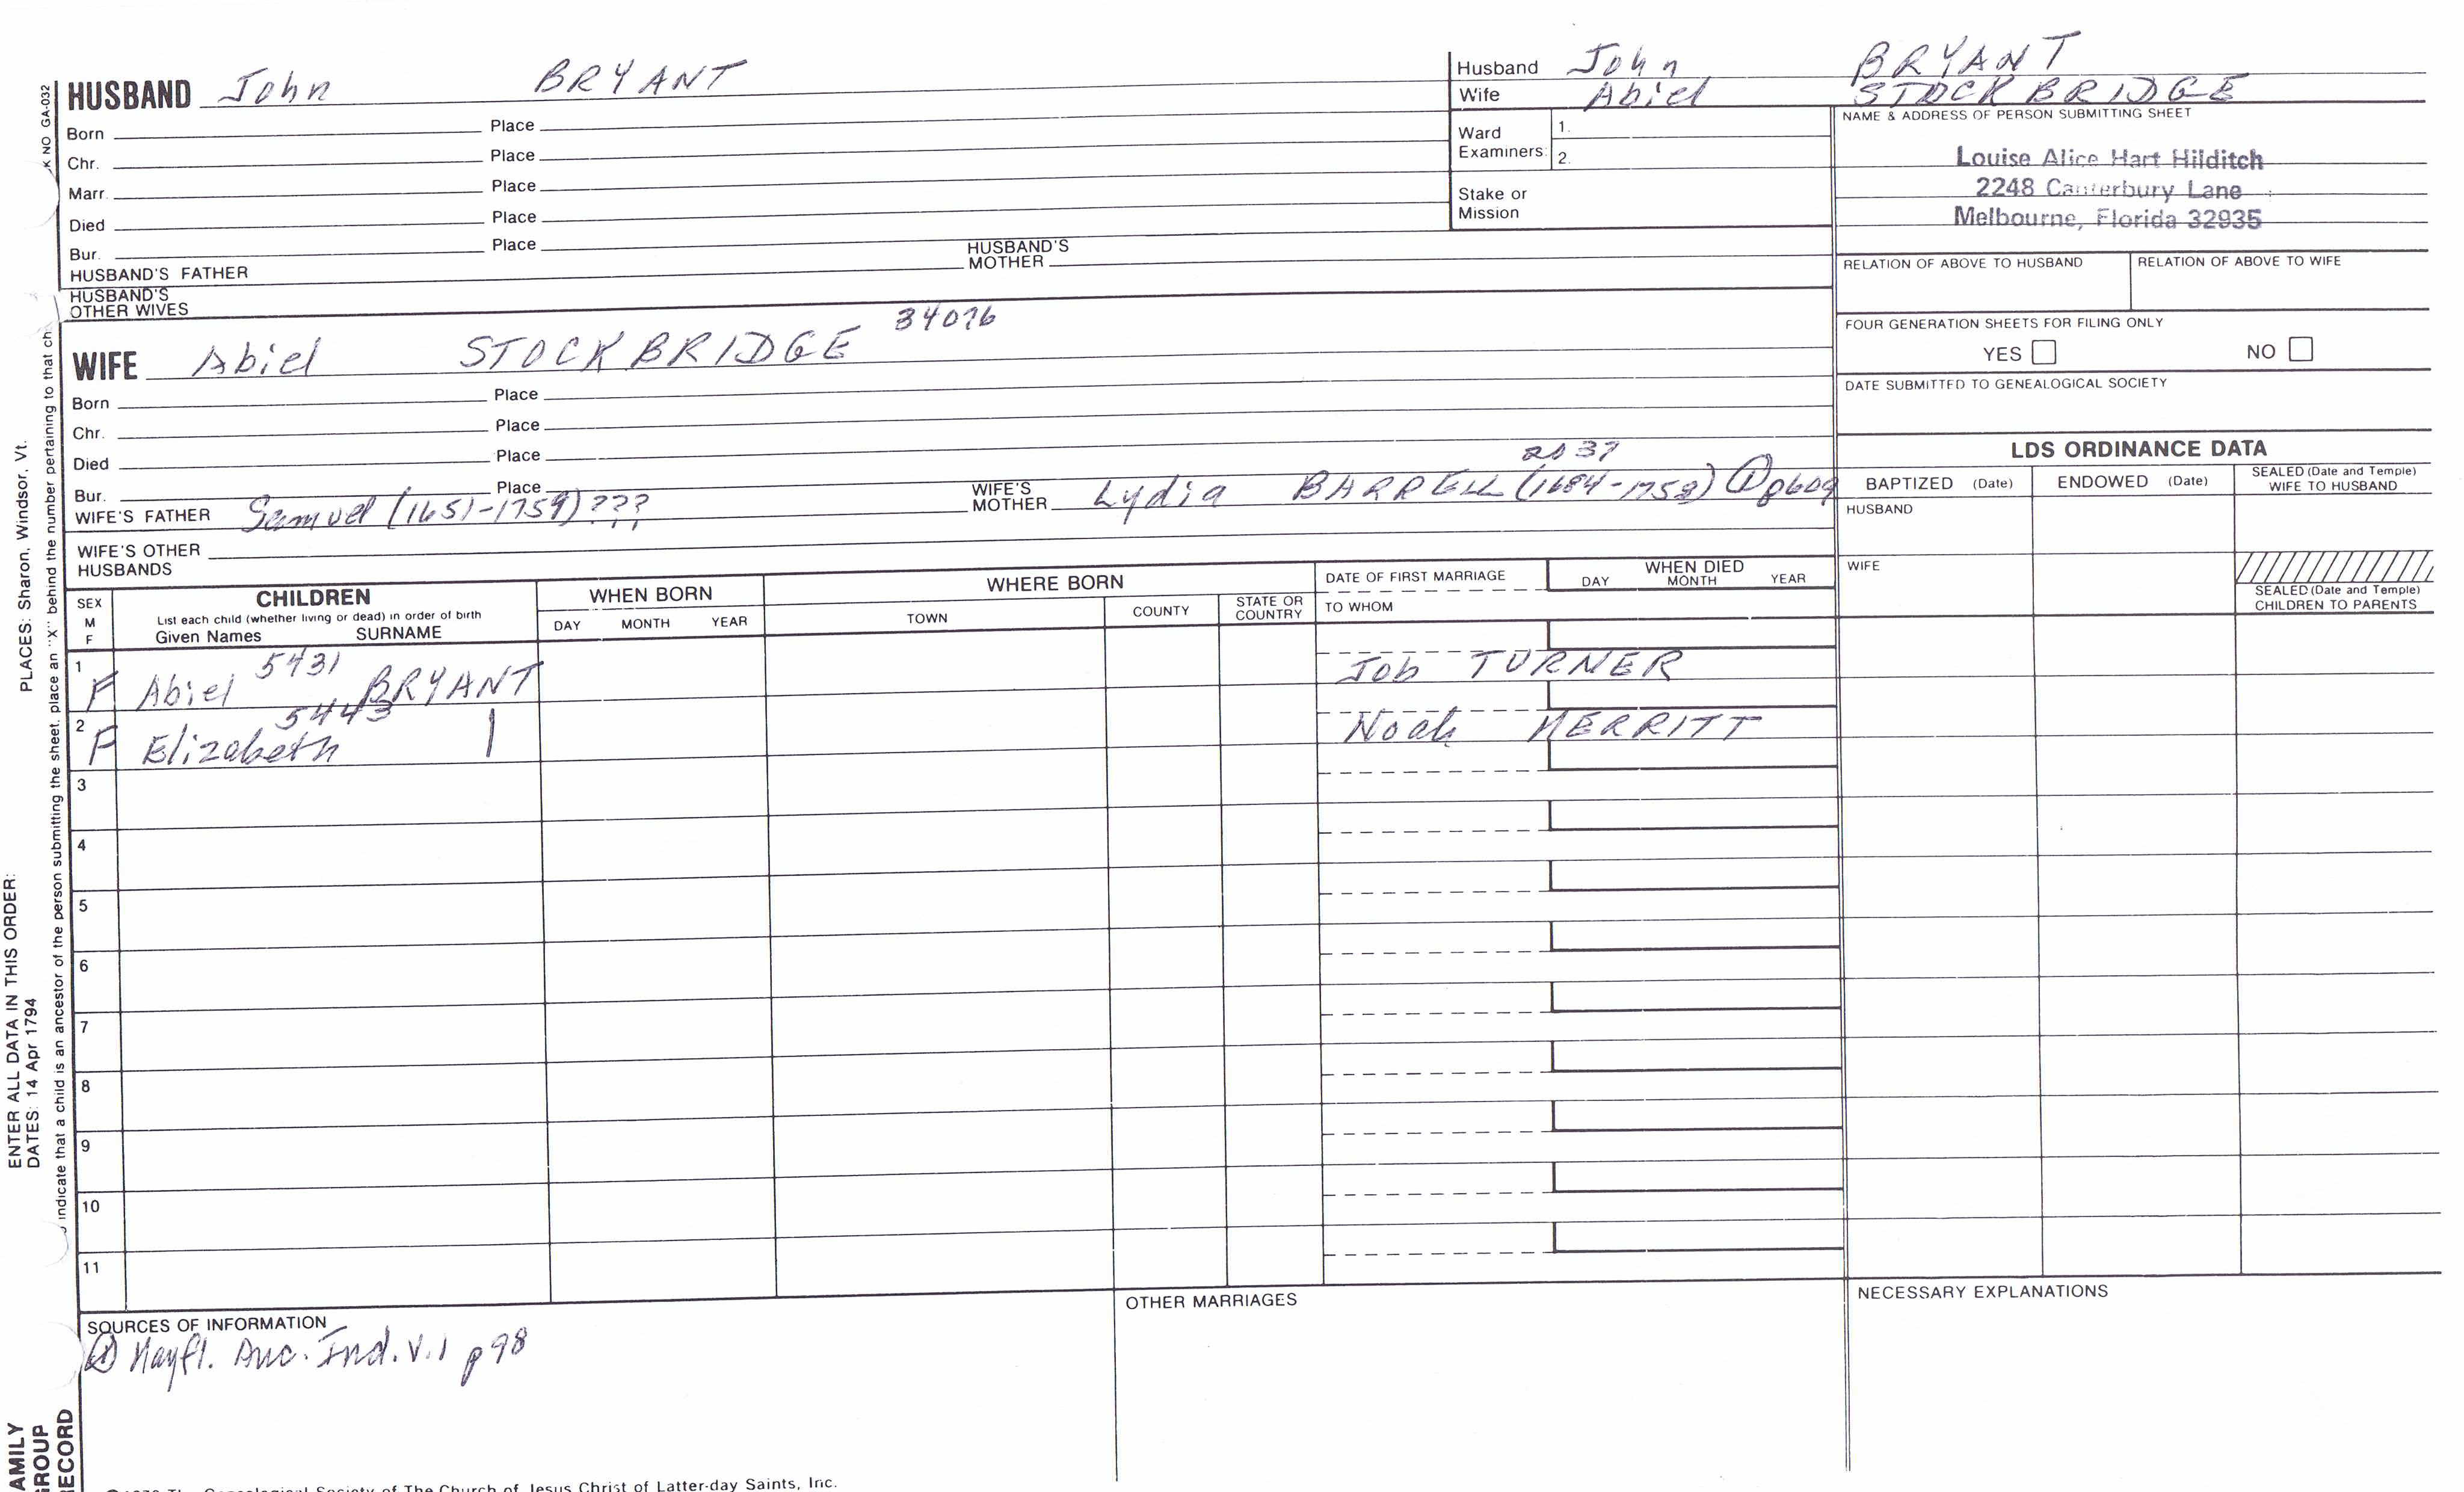 HUSBAND John BRYANT
Born Place
Chr. Place
Marr. Place
Died Place
Bur. Place
HUSBAND'S FATHER HUSBAND'S MOTHER
HUSBAND'S OTHER WIVES
34076
WIFE Abiel STOCKBRIDGE
Born Place
Chr. Place
Died Place
Bur. Place
2037
WIFE'S FATHER Samuel (1651-1759)??? WIFE'S MOTHER Lydia BARRELL (1684-1758) ① p609
WIFE'S OTHER HUSBANDS
Husband John BRYANT
Wife Abiel STOCKBRIDGE
Ward Examiners 1.
2.
Stake or Mission
NAME & ADDRESS OF PERSON SUBMITTING SHEET
Louise Alice Hart Hilditch
2248 Canterbury Lane
Melbourne, Florida 32935
RELATION OF ABOVE TO HUSBAND RELATION OF ABOVE TO WIFE
FOUR GENERATION SHEETS FOR FILING ONLY
YES NO
DATE SUBMITTED TO GENEALOGICAL SOCIETY
LDS ORDINANCE DATA
BAPTIZED (Date) ENDOWED (Date) SEALED (Date and Temple) WIFE TO HUSBAND
HUSBAND
WIFE
SEALED (Date and Temple) CHILDREN TO PARENTS
SEX M F
CHILDREN
List each child (whether living or dead) in order of birth
Given Names SURNAME
WHEN BORN
DAY MONTH YEAR
WHERE BORN
TOWN COUNTY STATE OR COUNTRY
DATE OF FIRST MARRIAGE
TO WHOM
WHEN DIED
DAY MONTH YEAR
1 F Abiel 5431 BRYANT Job TURNER
2 F Elizabeth 5443 | Noah MERRITT
3
4
5
6
7
8
9
10
11
SOURCES OF INFORMATION
① Mayfl. Anc. Ind. v.1 p98
OTHER MARRIAGES
NECESSARY EXPLANATIONS
©1972 The Genealogical Society of The Church of Jesus Christ of Latter-day Saints, Inc.
K NO GA-032
indicate that a child is an ancestor of the person submitting the sheet, place an "X" behind the number pertaining to that ch
ENTER ALL DATA IN THIS ORDER:
DATES: 14 Apr 1794 PLACES: Sharon, Windsor, Vt.
AMILY
GROUP
RECORD